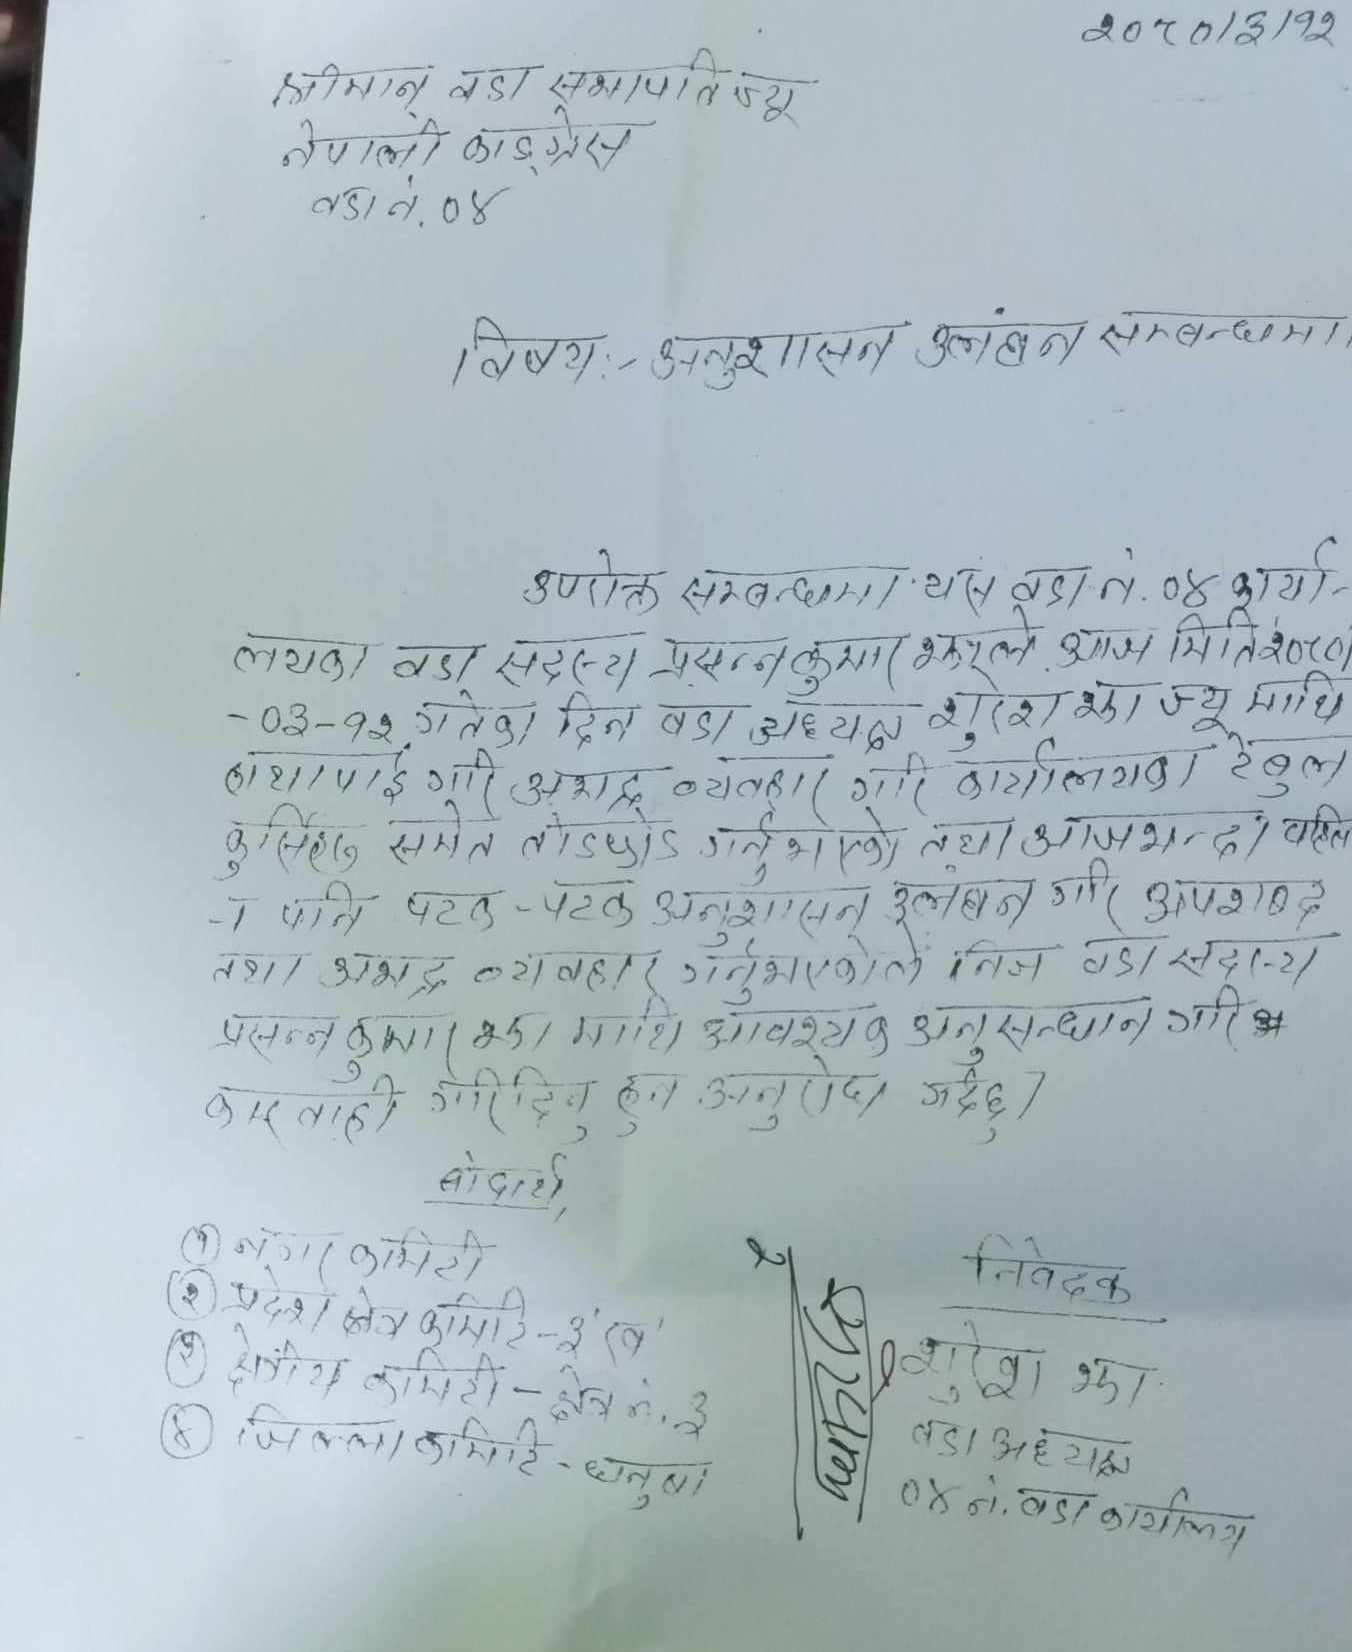 २०८०/३/१२
श्रीमान् वडा सभापतिज्यू
नेपाली काङ्ग्रेस
वडा नं. ०४
विषय:- अनुशासन उलंघन सम्बन्धमा।
उपरोक्त सम्बन्धमा यस वडा नं. ०४ कार्या-
लयका वडा सदस्य प्रसन्न कुमार झाले आज मिति २०८०
-०३-१२ गतेका दिन वडा अध्यक्ष शुरेश झा ज्यू माथि
हाथापाई गरि अभद्र व्यवहार गरि कार्यालयका टेबुल
कुर्सिहरु समेत तोडफोड गर्नुभएको तथा आजभन्दा पहिल
-ा पनि पटक-पटक अनुशासन उलंघन गरि अपशब्द
तथा अभद्र व्यवहार गर्नुभएकोले निज वडा सदस्य
प्रसन्न कुमार झा माथि आवश्यक अनुसन्धान गरि
कारवाही गरिदिनु हुन अनुरोध गर्दछु।
बोदार्थ,
१ नगर कमिटी
२ प्रदेश क्षेत्र कमिटि-३ 'ख'
३ क्षेत्रीय कमिटी - क्षेत्र नं. ३
४ जिल्ला कमिटि - धनुषा
निवेदक
शुरेश झा
वडा अध्यक्ष
०४ नं. वडा कार्यालय